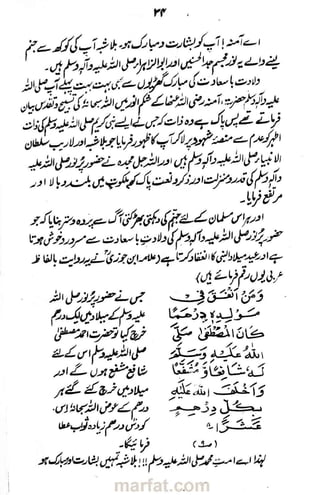 ۲۴
اے آمنہ! آپ کو بشارت و مبارک ہو۔ بلاشبہ آپ کی کوکھ سے جنم
پینے والے یہ نور مجسم جد الحسنین اور ابو الزہرا صلی اللہ علیہ وآلہ وسلم ہیں۔
ولادت با سعادت کی مبارک گھڑیوں سے بھی بہت بہت پہلے آپ صلی اللہ
علیہ وآلہ وسلم حضرت آمنہ رضی اللہ عنہا کے شکم انور میں اللہ سبحانہ کی تسبیح و تقدیس بیان
فرماتے تھے پس پاک ہے وہ ذات کہ جس نے ایسے نبی کریم صلی اللہ علیہ وآلہ وسلم کی ذات
اطہر کو عدم سے منصۂ شہود پر لا کر آپ کا ظہور فرمایا جو بلاشبہ اور لاریب سلطان
الانبیاء صلی اللہ علیہ وآلہ وسلم ہیں اور اللہ جل مجدہ نے حضور پر نور صلی اللہ علیہ
وآلہ وسلم کی قدر و منزلت اور ذکر و نعت پاک کو ملکوت میں بلند و بالا اور
مرتفع فرمایا۔
اور ہر اس مسلمان کے لئے جہنم کی دہکتی بھڑکتی آگ سے پردہ و ستر بنایا کہ جو
حضور پر نور صلی اللہ علیہ وآلہ وسلم کی ولادت با سعادت سے مسرور و خوش ہوتا
ہے اور عید میلاد النبی کا انعقاد کرتا ہے (علامہ ابن جوزی نے یہ روایت بالفاظ
عربی یوں رقم فرمائی ہیں)
وَمَنْ اَنْفَقَ فِیْ
مَوْلِدِہٖ دِرْھَمًا
کَانَ الْمُصْطَفٰی صَلَّی
اللہُ عَلَیْہِ وَسَلَّمَ
لَہٗ شَافِعًا وَّ مُشَفَّعًا
وَاَخْلَفَ اللہُ عَلَیْہِ
بِکُلِّ دِرْھَمٍ
عَشْرًا
جس نے حضور پر نور صلی اللہ
علیہ وسلم کے میلاد میں ایک درہم
خرچ کیا تو حضرت احمد مصطفیٰ
صلی اللہ علیہ وسلم اس کے لئے
شافع مشفع ہوں گے اور
میلاد میں خرچ کئے گئے ہر
درہم کے عوض اللہ سبحانہ اس
کو دس درہم زیادہ ثواب عطا
فرمائیگا۔
لہٰذا اے امت محمد صلی اللہ علیہ وسلم!!! بلاشبہ تمہیں بشارت و مبارک ہو
marfat.com